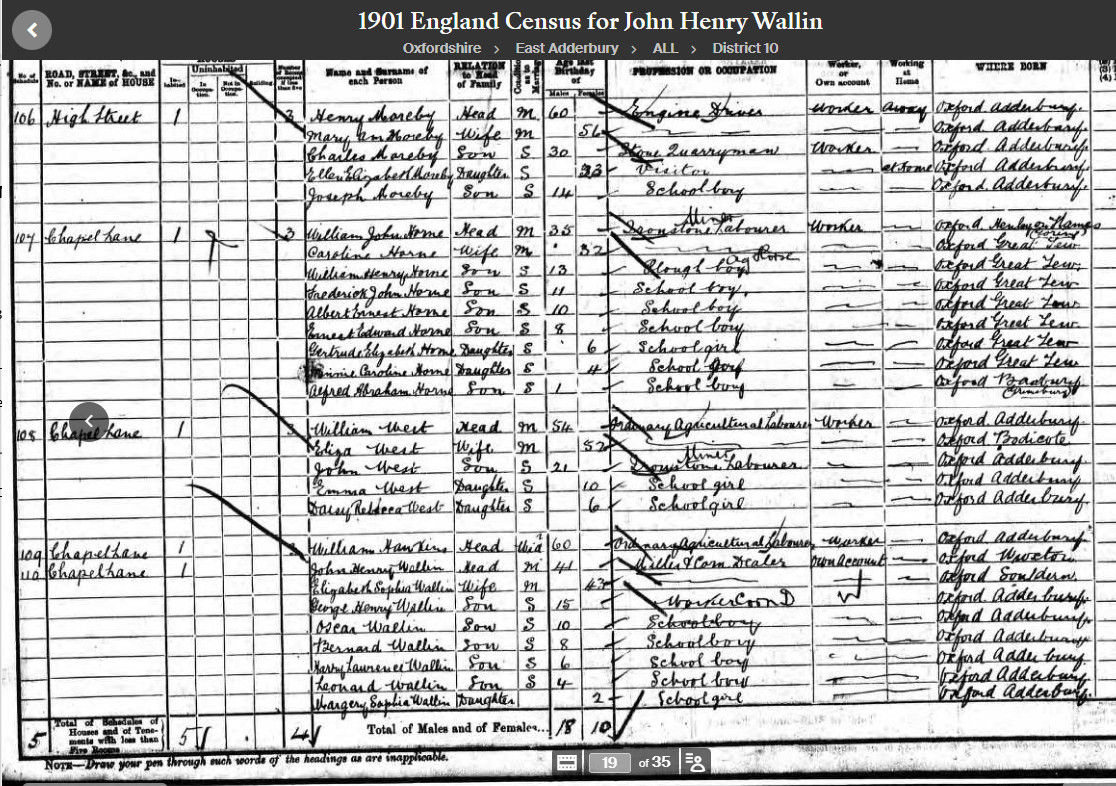 1901 England Census for John Henry Wallin
Oxfordshire > East Adderbury > ALL > District 10
No. of Schedule ROAD, STREET, &c., and No. or NAME of HOUSE HOUSES Inhabited Uninhabited In Occupation. Not in Occupation. Building Name and Surname of each Person RELATION to Head of Family Condition as to Marriage Age last Birthday of Males Females PROFESSION OR OCCUPATION Worker, or Own account Working at Home WHERE BORN
106 High Street 1 3 Henry Moreby Head M 60 Engine Driver Worker Away Oxford Adderbury.
Mary Ann Moreby Wife M 56 Oxford Adderbury.
Charles Moreby Son S 30 Stone Quarryman Worker Oxford Adderbury
Ellen Elizabeth Moreby Daughter S 23 Visitor at home Oxford Adderbury
Joseph Moreby Son S 14 School boy Oxford Adderbury.
107 Chapel Lane 1 3 William John Horne Head M 35 Ironstone Miner Labourer Worker Oxford Henley on Thames
Caroline Horne Wife M 32 Oxford Great Tew
William Henry Horne Son S 13 Plough boy Ag Horse Oxford Great Tew.
Frederick John Horne Son S 11 School boy. Oxford Great Tew
Albert Ernest Horne Son S 10 School boy Oxford Great Tew.
Ernest Edward Horne Son S 8 School boy Oxford Great Tew.
Gertrude Elizabeth Horne Daughter S 6 School girl Oxford Great Tew
Minnie Caroline Horne Daughter S 4 School Oxford Great Tew
Alfred Abraham Horne Son S 1 School boy Oxford Banbury Grimsbury
108 Chapel Lane 1 William West Head M 54 Ordinary Agricultural Labourer Worker Oxford Adderbury.
Eliza West Wife M 52 Oxford Bodicote
John West Son S 21 Ironstone Miner Labourer Oxford Adderbury
Emma West Daughter S 10 School girl Oxford Adderbury
Daisy Rebecca West Daughter S 6 School girl Oxford Adderbury.
109 Chapel Lane 1 William Hawkins Head Wid 60 Ordinary Agricultural Labourer Worker Oxford Adderbury.
110 Chapel Lane 1 John Henry Wallin Head M 41 Miller & Corn Dealer Own Account Oxford Wroxton
Elizabeth Sophia Wallin Wife M 43 Oxford Souldern.
George Henry Wallin Son S 15 Worker Corn D W Oxford Adderbury.
Oscar Wallin Son S 10 School boy Oxford Adderbury.
Bernard Wallin Son S 8 School boy Oxford Adderbury
Harry Lawrence Wallin Son S 6 School boy Oxford Adderbury.
Leonard Wallin Son S 4 School boy Oxford Adderbury.
Margery Sophia Wallin Daughter 2 School girl Oxford Adderbury.
5 Total of Schedules of Houses and of Tenements with less than Five Rooms 5 4 Total of Males and of Females... 18 10
NOTE—Draw your pen through such words of the headings as are inapplicable.
19 of 35